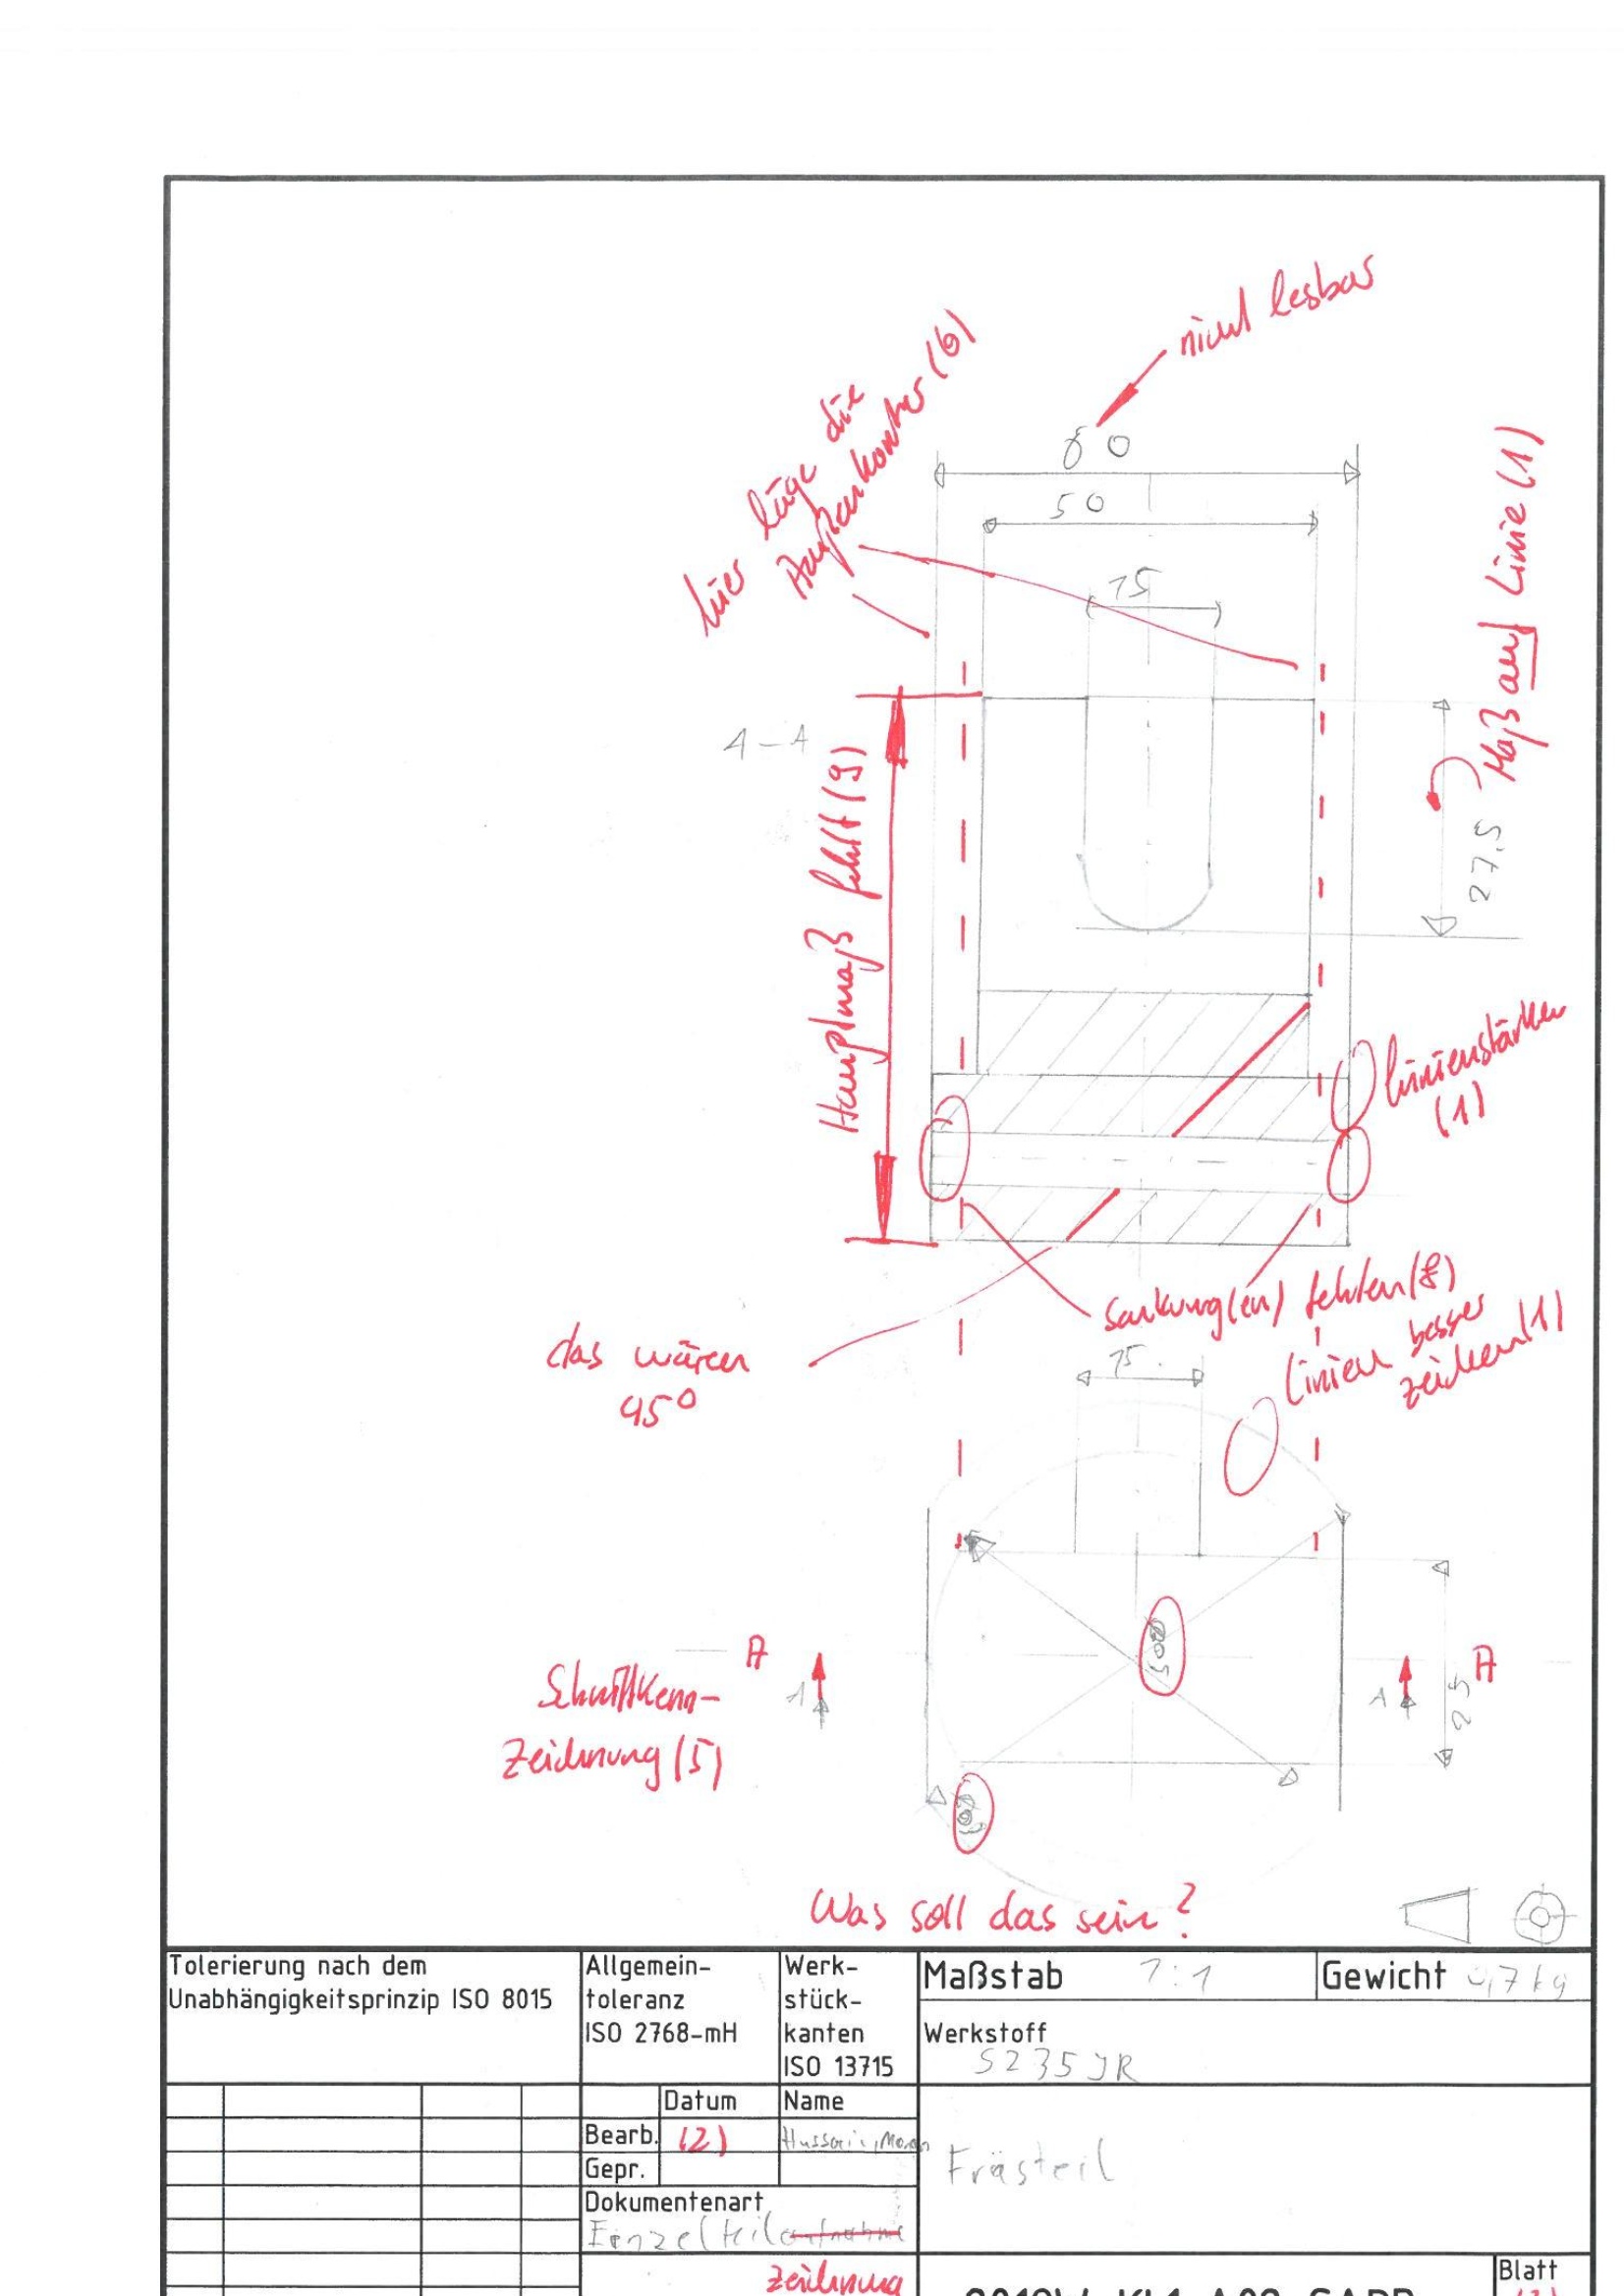 nicht lesbar
hier läge die
Außenkontur (6)
60
50
15
Maß auf Linie (1)
A-A
Hauptmaß fehlt (9)
27.5
Linienstärken
(1)
Senkung(en) fehlen (8)
Linien besser
zeichnen (1)
das wären
45°
15
A
A
Schnittkenn-
zeichnung (5)
A
A
25
Was soll das sein?
Tolerierung nach dem
Unabhängigkeitsprinzip ISO 8015
Allgemein-
toleranz
ISO 2768-mH
Werk-
stück-
kanten
ISO 13715
Maßstab 1:1
Gewicht 0,7kg
Werkstoff
S235JR
Datum
Name
Bearb. (2)
Gepr.
Frästeil
Dokumentenart
Einzelteil
zeichnung
Blatt